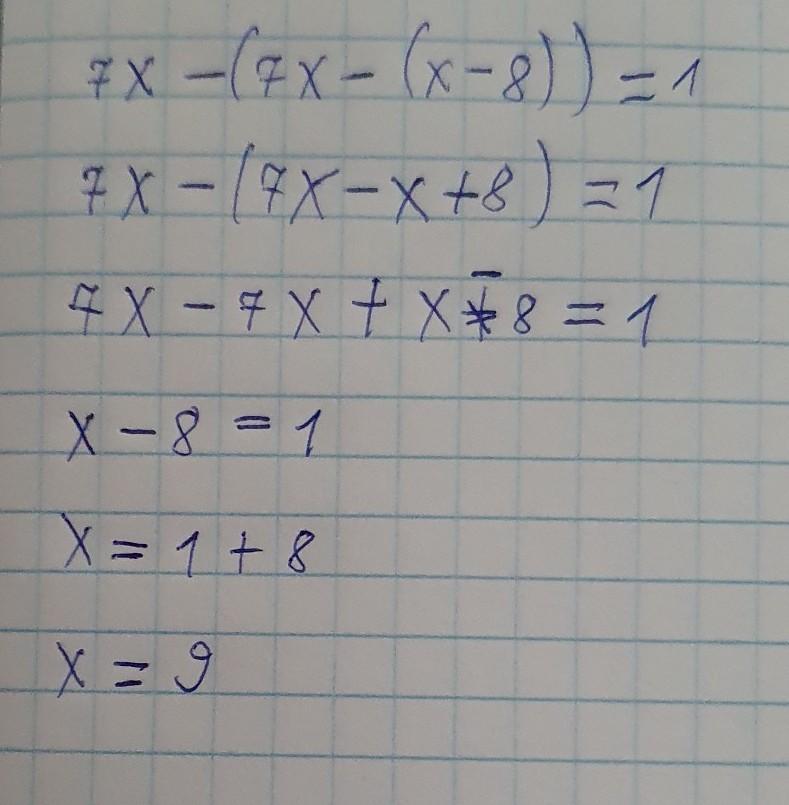 7x - (7x - (x - 8)) = 1
7x - (7x - x + 8) = 1
7x - 7x + x - 8 = 1
x - 8 = 1
x = 1 + 8
x = 9